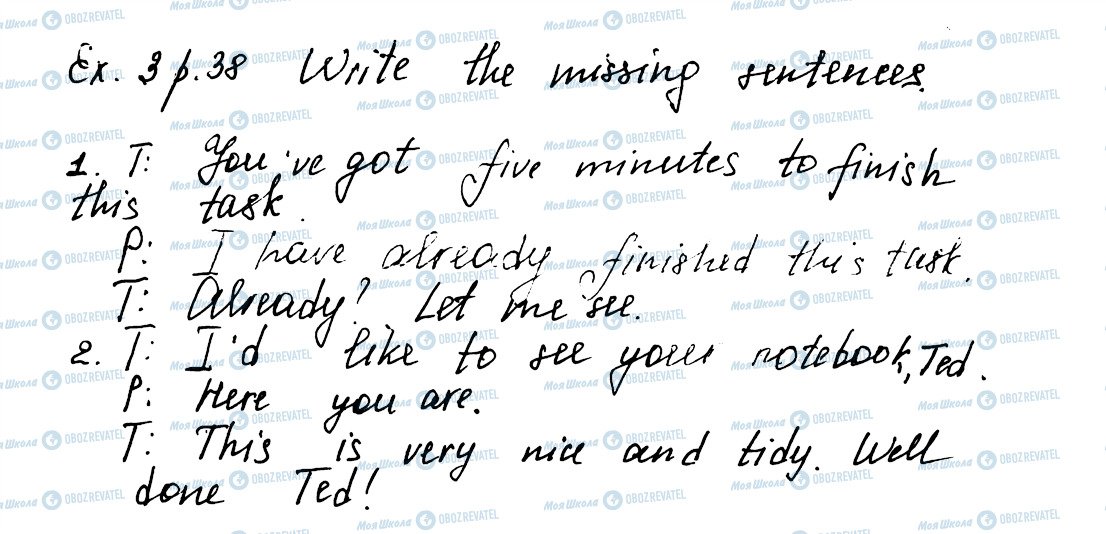 Ex. 3 p. 38 Write the missing sentences.
1. T: You've got five minutes to finish
this task.
P: I have already finished this task.
T: Already? Let me see.
2. T: I'd like to see your notebook, Ted.
P: Here you are.
T: This is very nice and tidy. Well
done Ted!